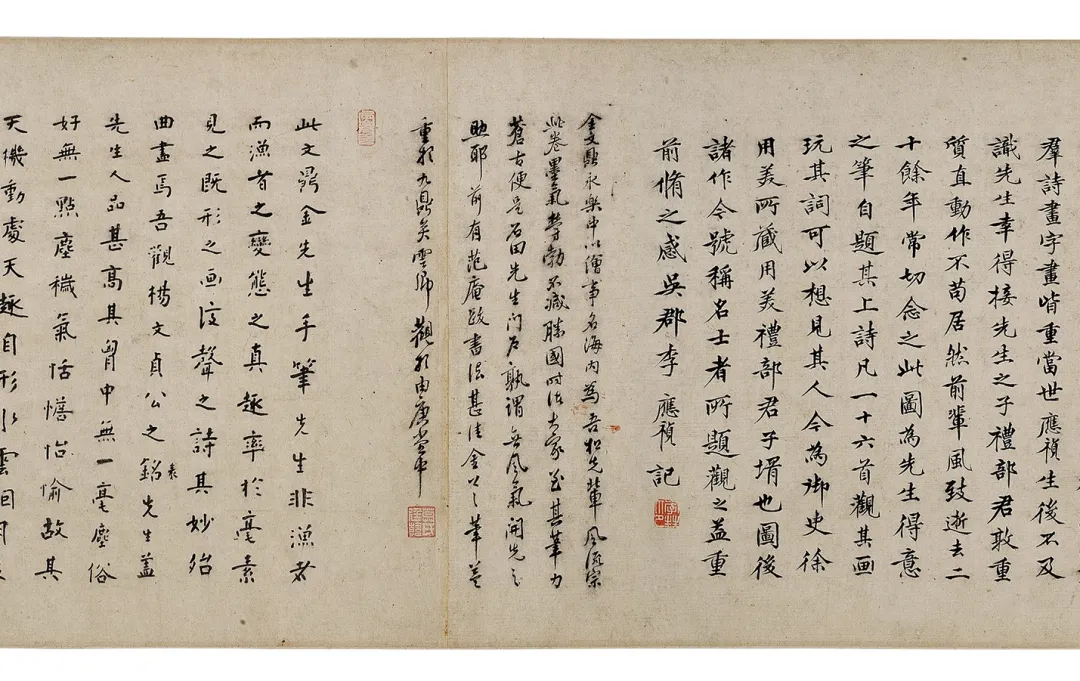 羣詩畫字畫皆重當世應禎生後不及
識先生幸得接先生之子禮部君敦重
質直動作不苟居然前輩風致逝去二
十餘年常切念之此圖為先生得意
之筆自題其上詩凡一十六首觀其畫
玩其詞可以想見其人今為御史徐
用美所藏用美禮部君子壻也圖後
諸作今號稱名士者所題觀之益重
前脩之感吳郡李應禎記
金文鼎永樂中以繪事名海内為吾松先輩風流宗
此卷墨氣勃不減勝國時諸大家至其筆力
蒼古便是石田先生門戶孰謂無風氣開先之
助耶前有范庵跋書法甚佳金以之筆並
重於九鼎矣雲卿觀於由庚堂中
此文鼎金先生手筆先生非漁者
而漁者之變態之真趣率於毫素
見之既形之画復聲之詩其妙殆
曲盡焉吾觀楊文貞公之銘先生蓋
先生人品甚高其胸中無一毫塵俗
好無一點塵穢氣恬憺怡愉故其
天機動處天趣自形水雲